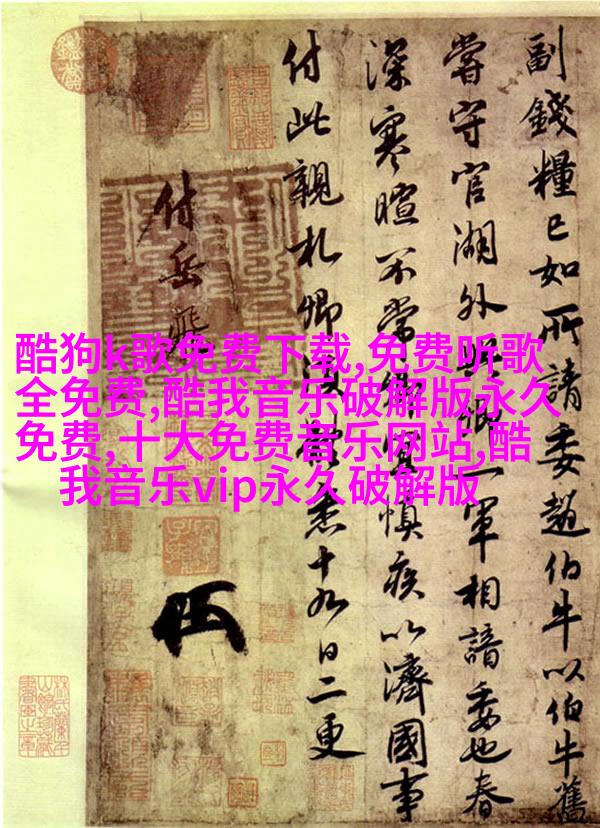 酷狗k歌免费下载,免费听歌
全免费,酷我音乐破解版永久
免费,十大免费音乐网站,酷
我音乐vip永久破解版
副錢糧已如所請委趙伯牛以伯牛舊
嘗守官湖外與卿一軍相諳委也春
深寒暄不常卿宜慎疾以濟國事
付此親札卿須體悉十九日二更
付岳飛